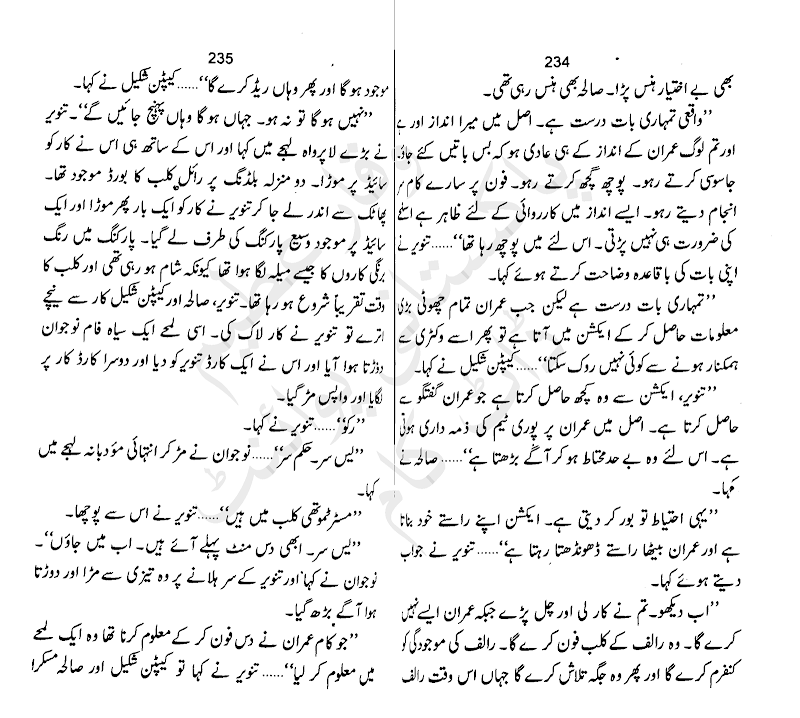 234
بھی بے اختیار ہنس پڑا۔ صالحہ بھی ہنس رہی تھی۔
’’واقعی تمہاری بات درست ہے۔ اصل میں میرا انداز اور ہے
اور تم لوگ عمران کے انداز کے ہی عادی ہو کہ بس باتیں کئے جاؤ۔
جاسوسی کرتے رہو۔ پوچھ گچھ کرتے رہو۔ فون پر سارے کام سر
انجام دیتے رہو۔ ایسے انداز میں کارروائی کے لئے ظاہر ہے اسلحے
کی ضرورت ہی نہیں پڑتی۔ اس لئے میں پوچھ رہا تھا‘‘...... تنویر نے
اپنی بات کی باقاعدہ وضاحت کرتے ہوئے کہا۔
’’تمہاری بات درست ہے لیکن جب عمران تمام چھوٹی بڑی
معلومات حاصل کر کے ایکشن میں آتا ہے تو پھر اسے وکٹری سے
ہمکنار ہونے سے کوئی نہیں روک سکتا‘‘...... کیپٹن شکیل نے کہا۔
’’تنویر، ایکشن سے وہ کچھ حاصل کرتا ہے جو عمران گفتگو سے
حاصل کرتا ہے۔ اصل میں عمران پر پوری ٹیم کی ذمہ داری ہوتی
ہے۔ اس لئے وہ بے حد محتاط ہو کر آگے بڑھتا ہے‘‘...... صالحہ نے
کہا۔
’’یہی احتیاط تو بور کر دیتی ہے۔ ایکشن اپنے راستے خود بناتا
ہے اور عمران بیٹھا راستے ڈھونڈھتا رہتا ہے‘‘...... تنویر نے جواب
دیتے ہوئے کہا۔
’’اب دیکھو۔ تم نے کار لی اور چل پڑے جبکہ عمران ایسے نہیں
کرے گا۔ وہ رالف کے کلب فون کرے گا۔ رالف کی موجودگی کو
کنفرم کرے گا اور پھر وہ جگہ تلاش کرے گا جہاں اس وقت رالف
235
موجود ہو گا اور پھر وہاں ریڈ کرے گا‘‘...... کیپٹن شکیل نے کہا۔
’’نہیں ہو گا تو نہ ہو۔ جہاں ہو گا وہاں پہنچ جائیں گے‘‘۔ تنویر
نے بڑے لاپرواہ لہجے میں کہا اور اس کے ساتھ ہی اس نے کار کو
سائیڈ پر موڑا۔ دو منزلہ بلڈنگ پر رائل کلب کا بورڈ موجود تھا۔
پھاٹک سے اندر لے جا کر تنویر نے کار کو ایک بار پھر موڑا اور ایک
سائیڈ پر موجود وسیع پارکنگ کی طرف لے گیا۔ پارکنگ میں رنگ
برنگی کاروں کا جیسے میلہ لگا ہوا تھا کیونکہ شام ہو رہی تھی اور کلب کا
وقت تقریباً شروع ہو رہا تھا۔ تنویر، صالحہ اور کیپٹن شکیل کار سے نیچے
اترے تو تنویر نے کار لاک کی۔ اسی لمحے ایک سیاہ فام نوجوان
دوڑتا ہوا آیا اور اس نے ایک کارڈ تنویر کو دیا اور دوسرا کارڈ کار پر
لگایا اور واپس مڑ گیا۔
’’رکو‘‘...... تنویر نے کہا۔
’’یس سر۔ حکم سر‘‘...... نوجوان نے مڑ کر انتہائی مؤدبانہ لہجے میں
کہا۔
’’مسٹر ٹموتھی کلب میں ہیں‘‘...... تنویر نے اس سے پوچھا۔
’’یس سر۔ ابھی دس منٹ پہلے آئے ہیں۔ اب میں جاؤں‘‘۔
نوجوان نے کہا اور تنویر کے سر ہلانے پر وہ تیزی سے مڑا اور دوڑتا
ہوا آگے بڑھ گیا۔
’’جو کام عمران نے دس فون کر کے معلوم کرنا تھا وہ ایک لمحے
میں معلوم کر لیا‘‘...... تنویر نے کہا تو کیپٹن شکیل اور صالحہ مسکرا